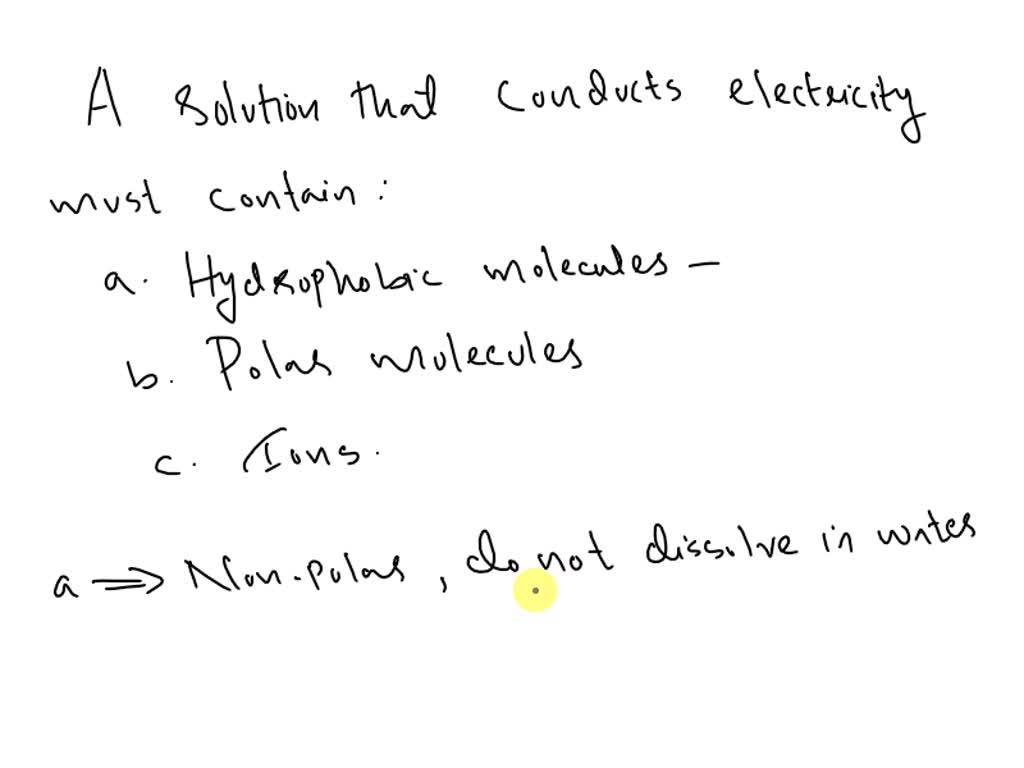 A solution that conducts electricity
must contain:
a. Hydrophobic molecules –
b. Polar molecules
c. Ions.
a ⟹ Non-polar, do not dissolve in water